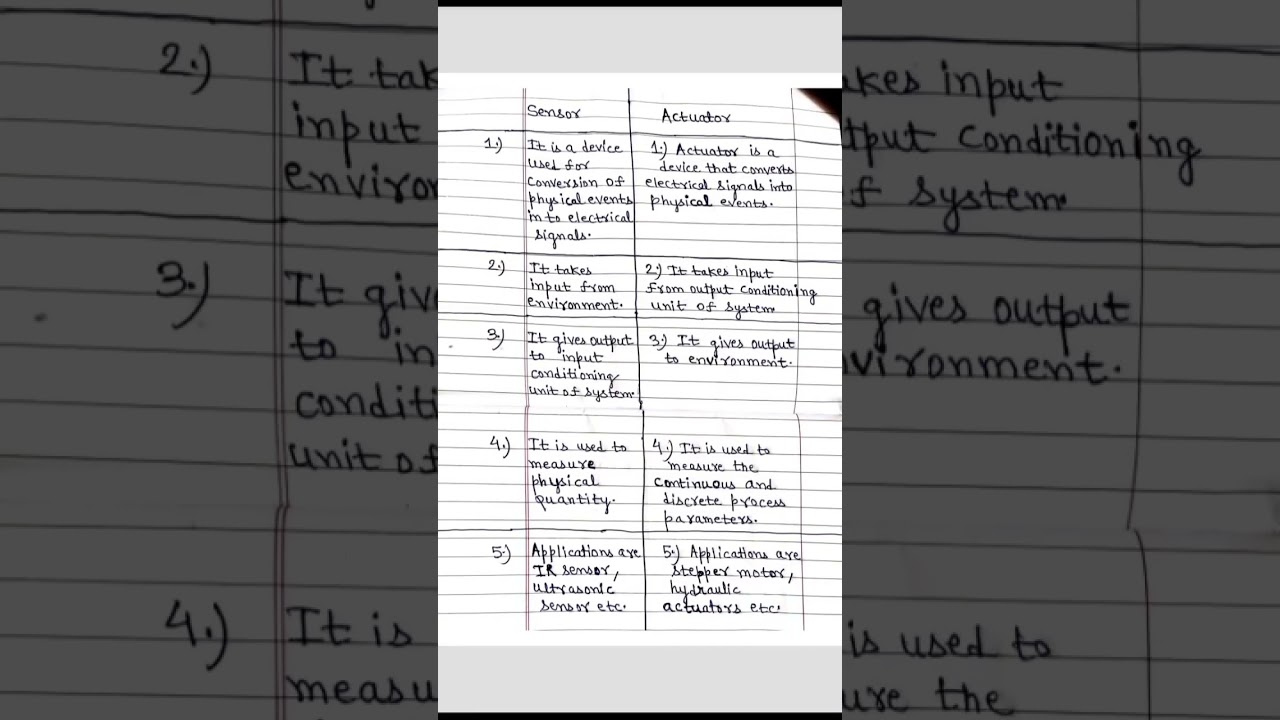 Sensor
Actuator
1.)
It is a device
used for
conversion of
physical events
in to electrical
signals.
1.) Actuator is a
device that converts
electrical signals into
physical events.
2.)
It takes
input from
environment.
2.) It takes input
from output conditioning
unit of system
3.)
It gives output
to input
conditioning
unit of system
3.) It gives output
to environment.
4.)
It is used to
measure
physical
quantity.
4.) It is used to
measure the
continuous and
discrete process
parameters.
5.)
Applications are
IR sensor,
ultrasonic
sensor etc.
5.) Applications are
stepper motor,
hydraulic
actuators etc.
2.)
It tak
input
enviro
3.)
It giv
to in
condit
unit of
4.)
It is
measu
akes input
tput conditioning
f system
gives output
vironment.
is used to
ure the